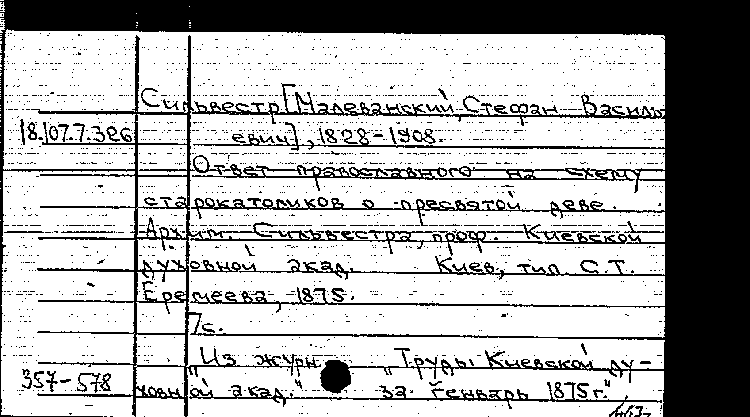 Сильвестр [Малеванский, Стефан Василь
18.107.7.326
евич], 1828-1908.
Ответ православного на схему
старокатоликов о пресвятой деве.
Архим. Сильвестра, проф. Киевской
духовной акад. Киев, тип С.Т.
Еремеева, 1875.
7с.
„Из журн. „Труды Киевской ду-
357-578
ховной акад." за генварь 1875г."